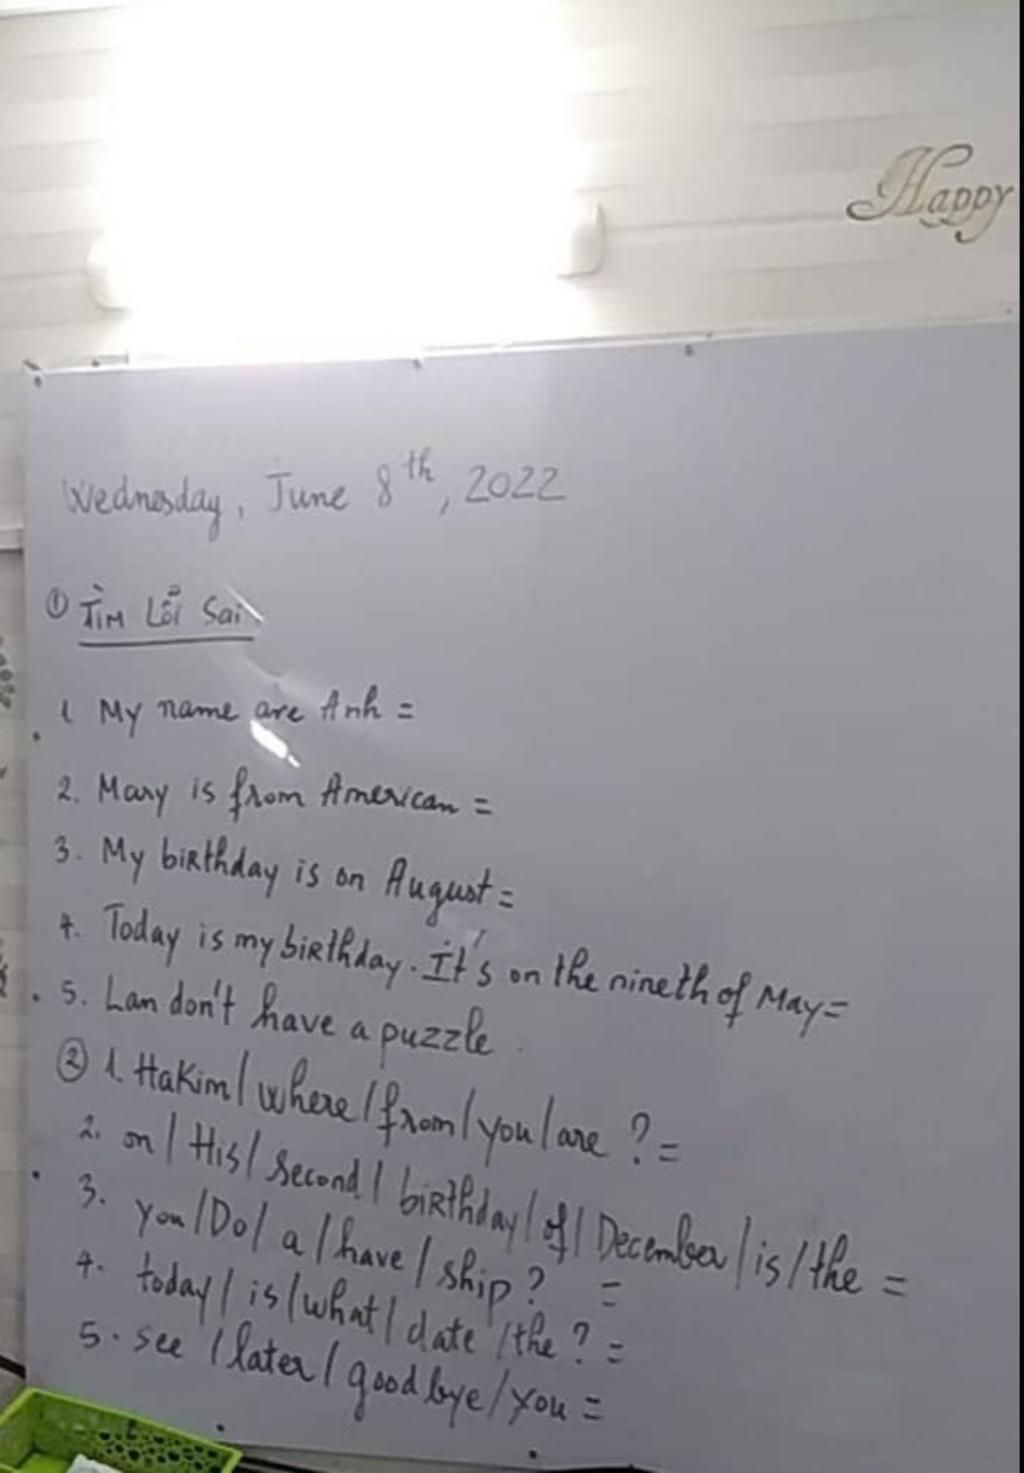 Happy
Wednesday, June 8th, 2022
① Tìm Lỗi Sai
1 My name are Anh =
2. Mary is from American =
3. My birthday is on August =
4. Today is my birthday. It's on the nineth of May =
5. Lan don't have a puzzle.
② 1. Hakim / where / from / you / are ? =
2. on / His / second / birthday / of / December / is / the =
3. you / Do / a / have / ship ? =
4. today / is / what / date / the ? =
5. see / later / goodbye / you =